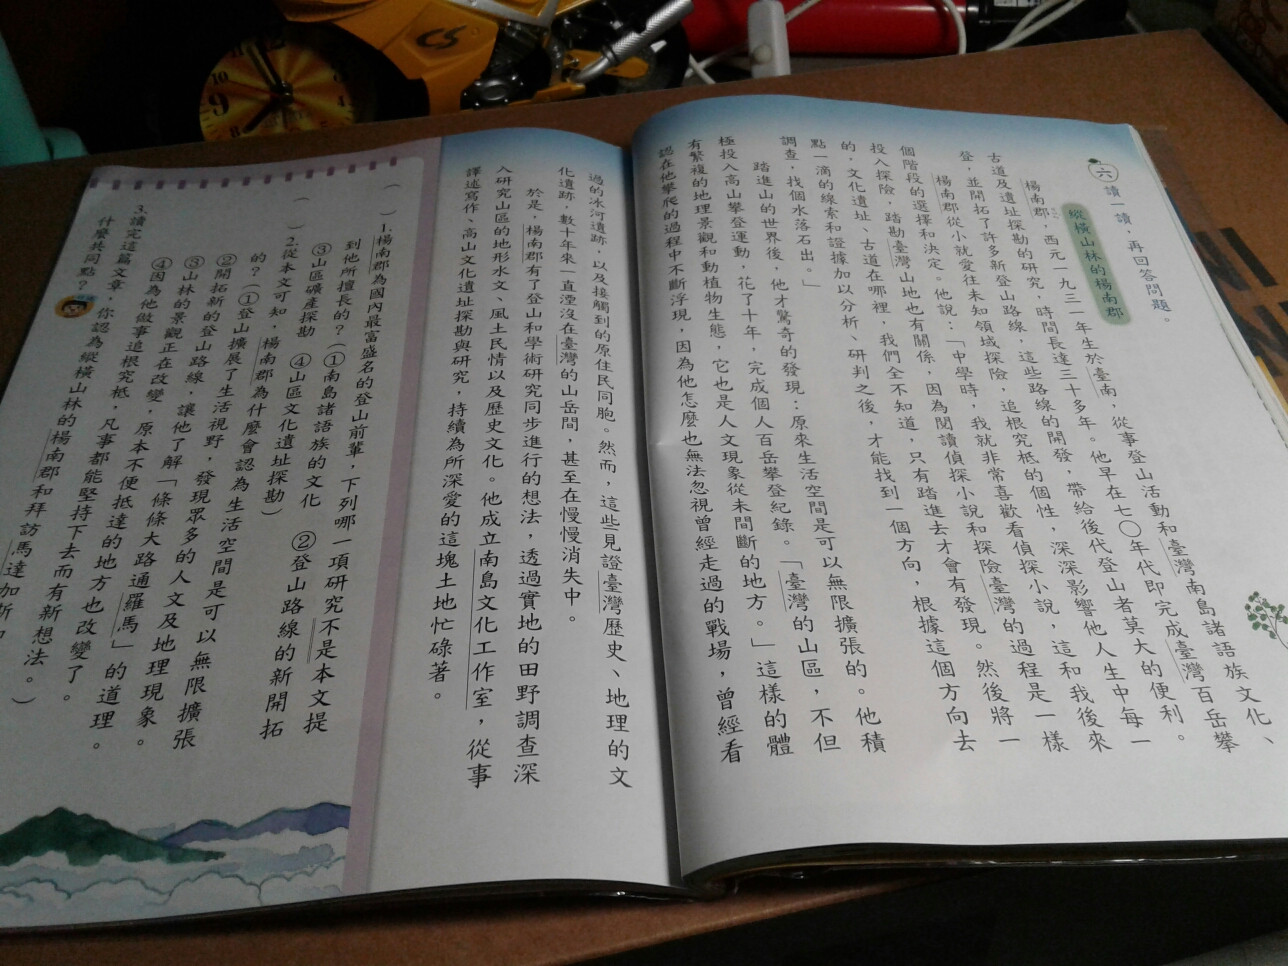 六 讀一讀，再回答問題。
縱橫山林的楊南郡
楊南郡，西元一九三一年生於臺南，從事登山活動和臺灣南島諸語族文化、
古道及遺址探勘的研究，時間長達三十多年。他早在七〇年代即完成臺灣百岳攀
登，並開拓了許多新登山路線，這些路線的開發，帶給後代登山者莫大的便利。
楊南郡從小就愛往未知領域探險，追根究柢的個性，深深影響他人生中每一
個階段的選擇和決定。他說：「中學時，我就非常喜歡看偵探小說，這和我後來
投入探險，踏勘臺灣山地也有關係，因為閱讀偵探小說和探險臺灣的過程是一樣
的，文化遺址、古道在哪裡，我們全不知道，只有踏進去才會有發現。然後將一
點一滴的線索和證據加以分析、研判之後，才能找到一個方向，根據這個方向去
調查，找個水落石出。」
踏進山的世界後，他才驚奇的發現：原來生活空間是可以無限擴張的。他積
極投入高山攀登運動，花了十年，完成個人百岳攀登紀錄。「臺灣的山區，不但
有繁複的地理景觀和動植物生態，它也是人文現象從未間斷的地方。」這樣的體
認在他攀爬的過程中不斷浮現，因為他怎麼也無法忽視曾經走過的戰場，曾經看
過的冰河遺跡，以及接觸到的原住民同胞。然而，這些見證臺灣歷史、地理的文
化遺跡，數十年來一直湮沒在臺灣的山岳間，甚至在慢慢消失中。
於是，楊南郡有了登山和學術研究同步進行的想法，透過實地的田野調查深
入研究山區的地形水文、風土民情以及歷史文化。他成立南島文化工作室，從事
譯述寫作、高山文化遺址探勘與研究，持續為所深愛的這塊土地忙碌著。
（　）1.楊南郡為國內最富盛名的登山前輩，下列哪一項研究不是本文提
到他所擅長的？（①南島諸語族的文化　②登山路線的新開拓
③山區礦產探勘　④山區文化遺址探勘）
（　）2.從本文可知，楊南郡為什麼會認為生活空間是可以無限擴張
的？（①登山擴展了生活視野，發現眾多的人文及地理現象。
②開拓新的登山路線，讓他了解「條條大路通羅馬」的道理。
③山林的景觀正在改變，原本不便抵達的地方也改變了。
④因為他做事追根究柢，凡事都能堅持下去而有新想法。）
3.讀完這篇文章，你認為縱橫山林的楊南郡和拜訪馬達加斯加
什麼共同點？
CS
10
9
8
7
4